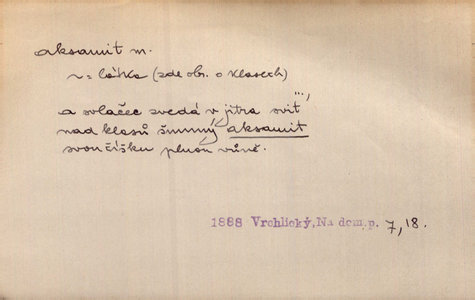 aksamit m.
~ = látka (zde obr. o klasech)
... ,
a svlačec zvedá v jitra svit
nad klasů šumný aksamit
svou číšku plnou vůně.
1888 Vrchlický, Na dom. p. 7, 18.